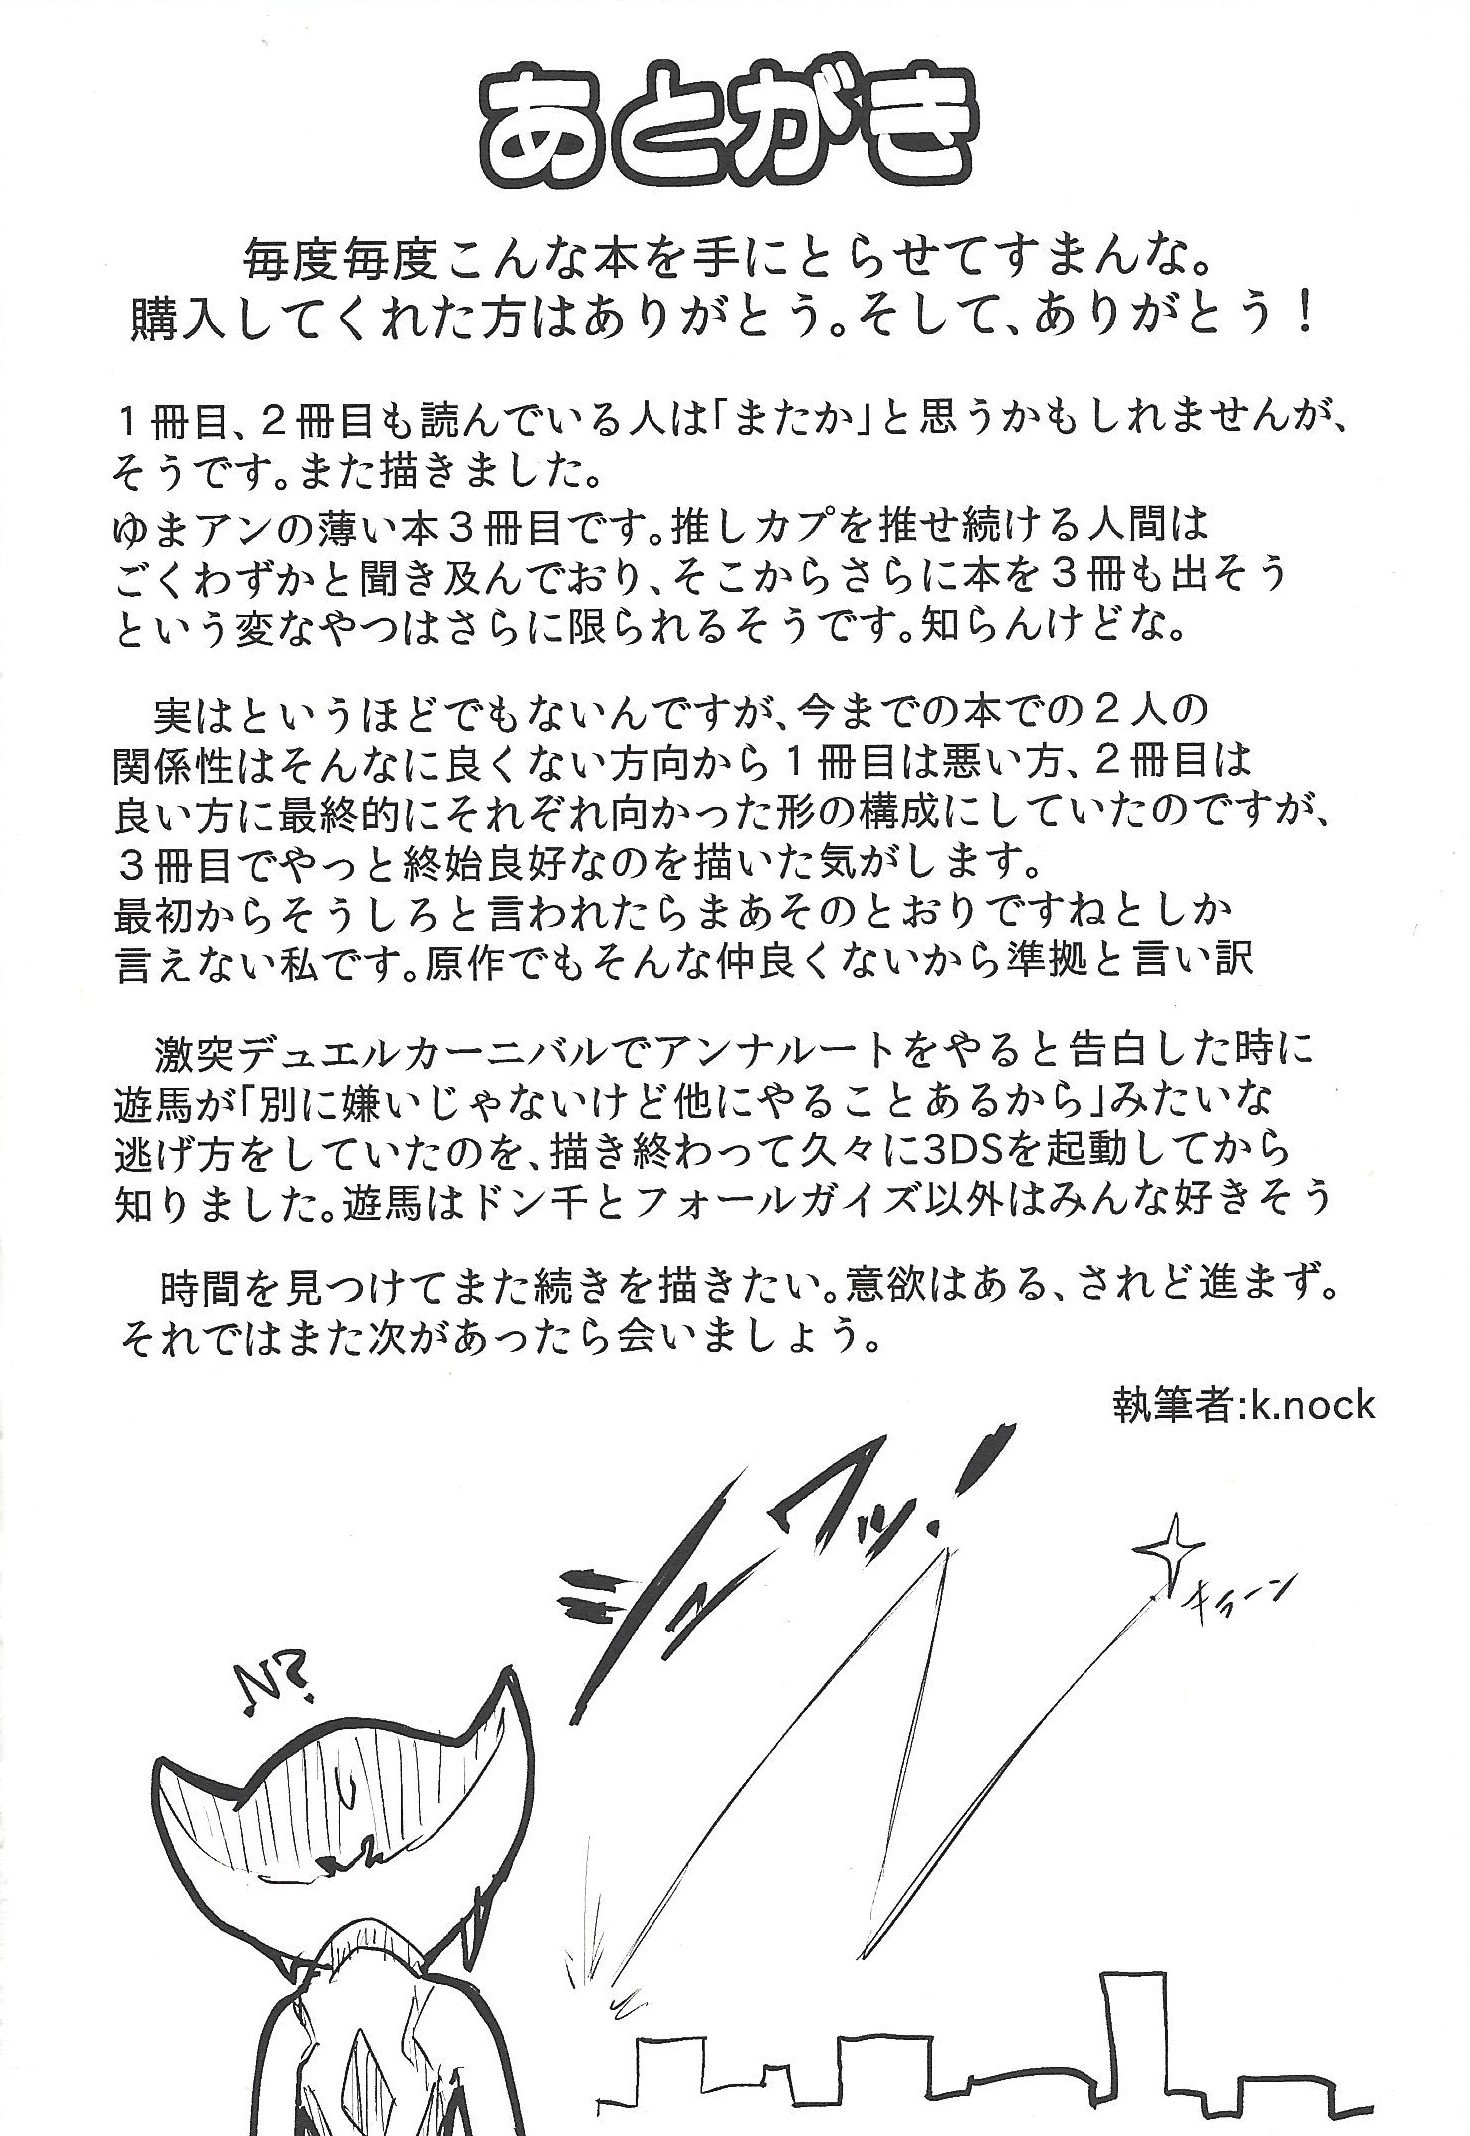 あとがき
毎度毎度こんな本を手にとらせてすまんな。
購入してくれた方はありがとう。そして、ありがとう！
１冊目、２冊目も読んでいる人は「またか」と思うかもしれませんが、
そうです。また描きました。
ゆまアンの薄い本３冊目です。推しカプを推せ続ける人間は
ごくわずかと聞き及んでおり、そこからさらに本を３冊も出そう
という変なやつはさらに限られるそうです。知らんけどな。
実はというほどでもないんですが、今までの本での２人の
関係性はそんなに良くない方向から１冊目は悪い方、２冊目は
良い方に最終的にそれぞれ向かった形の構成にしていたのですが、
３冊目でやっと終始良好なのを描いた気がします。
最初からそうしろと言われたらまあそのとおりですねとしか
言えない私です。原作でもそんな仲良くないから準拠と言い訳
激突デュエルカーニバルでアンナルートをやると告白した時に
遊馬が「別に嫌いじゃないけど他にやることあるから」みたいな
逃げ方をしていたのを、描き終わって久々に3DSを起動してから
知りました。遊馬はドン千とフォールガイズ以外はみんな好きそう
時間を見つけてまた続きを描きたい。意欲はある、されど進まず。
それではまた次があったら会いましょう。
執筆者:k.nock
シュワッ！
キラーン
N?